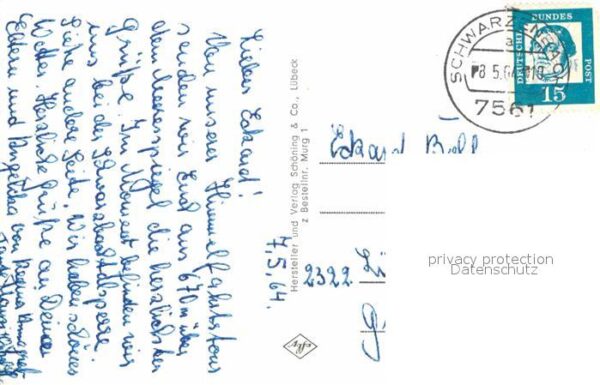 Lieber Eckard!
Von unserer Himmelfahrtstour
senden wir Euch aus 670 m über
dem Meeresspiegel die herzlichsten
Grüße. Im Moment befinden wir
uns bei der Schwarzbachtalsperre
Siehe andere Seite. Wir haben schönes
Wetter. Herzliche Grüße an Deine
Eltern und Angelika von
7.5.64.
Hersteller und Verlag Schöning & Co., Lübeck
z Bestellnr. Murg 1
Eckard
2322
SCHWARZENBERG
8.5.64
7561
DEUTSCHE BUNDESPOST
15
privacy protection
Datenschutz